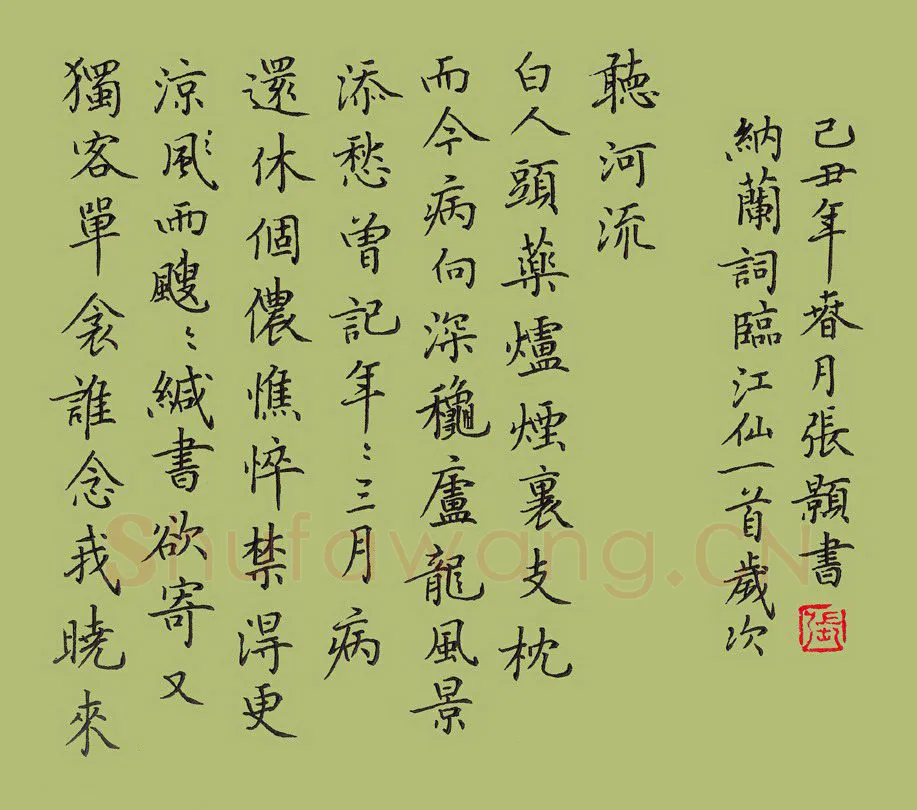 獨客單衾誰念我曉來
涼風雨颼〻緘書欲寄又
還休個儂憔悴禁得更
添愁曾記年〻三月病
而今病向深龝廬龍風景
白人頭藥爐煙裏支枕
聽河流
納蘭詞臨江仙一首歲次
己丑年月張顥書
張
Shufawang.CN